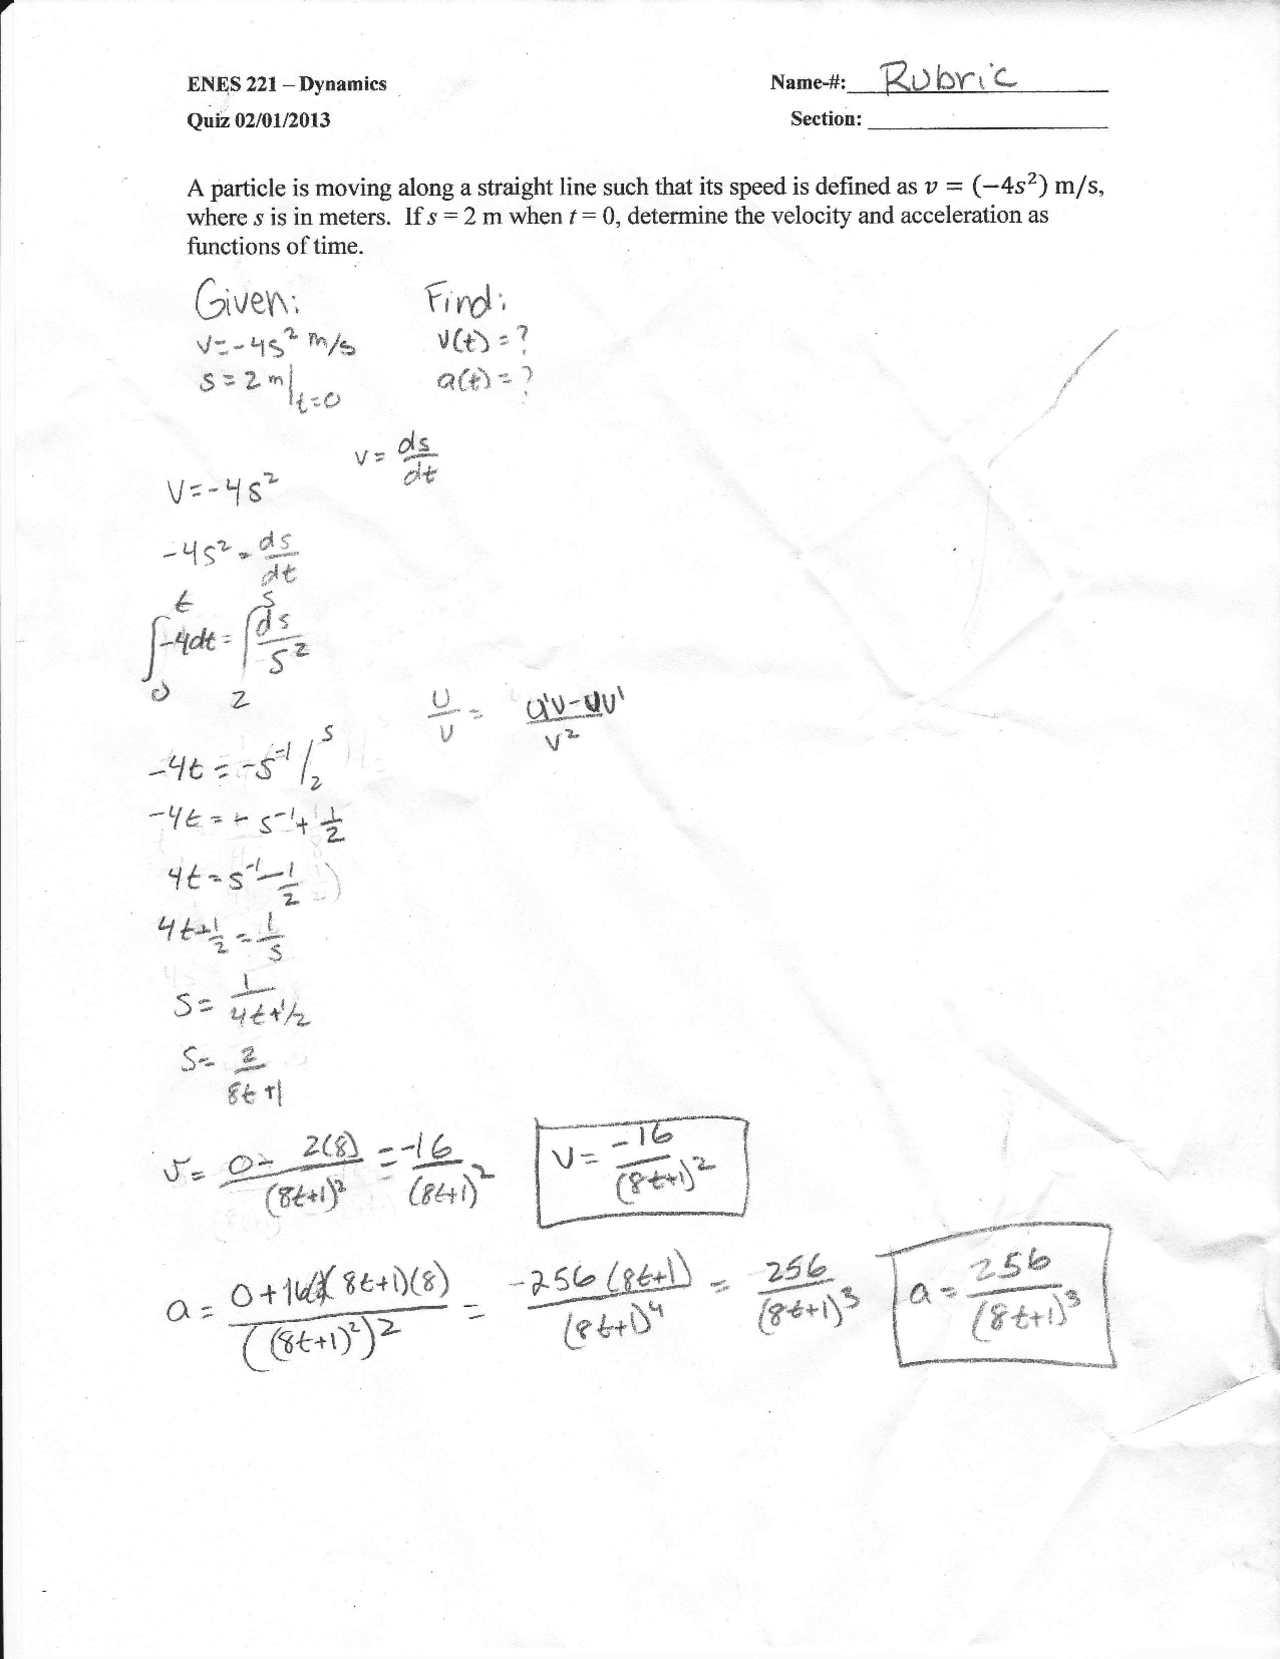 ENES 221 – Dynamics
Name-#: Rubric
Quiz 02/01/2013
Section:
A particle is moving along a straight line such that its speed is defined as v = (−4s²) m/s,
where s is in meters. If s = 2 m when t = 0, determine the velocity and acceleration as
functions of time.
Given: Find:
v=-4s² m/s v(t) = ?
s = 2 m|t=0 a(t) = ?
v = ds/dt
V=-4s²
-4s² = ds/dt
∫₀ᵗ -4dt = ∫₂ˢ ds/s²
u/v = (u'v-uv')/v²
-4t = -s⁻¹/₂ˢ
-4t = - s⁻¹ + 1/2
4t = s⁻¹ - 1/2
4t + 1/2 = 1/s
s = 1/(4t+1/2)
s = 2/(8t+1)
v = (0 - 2(8))/(8t+1)² = -16/(8t+1)² V = -16/(8t+1)²
a = (0+16(2)(8t+1)(8))/((8t+1)²)² = -256(8t+1)/(8t+1)⁴ = 256/(8t+1)³ a = 256/(8t+1)³